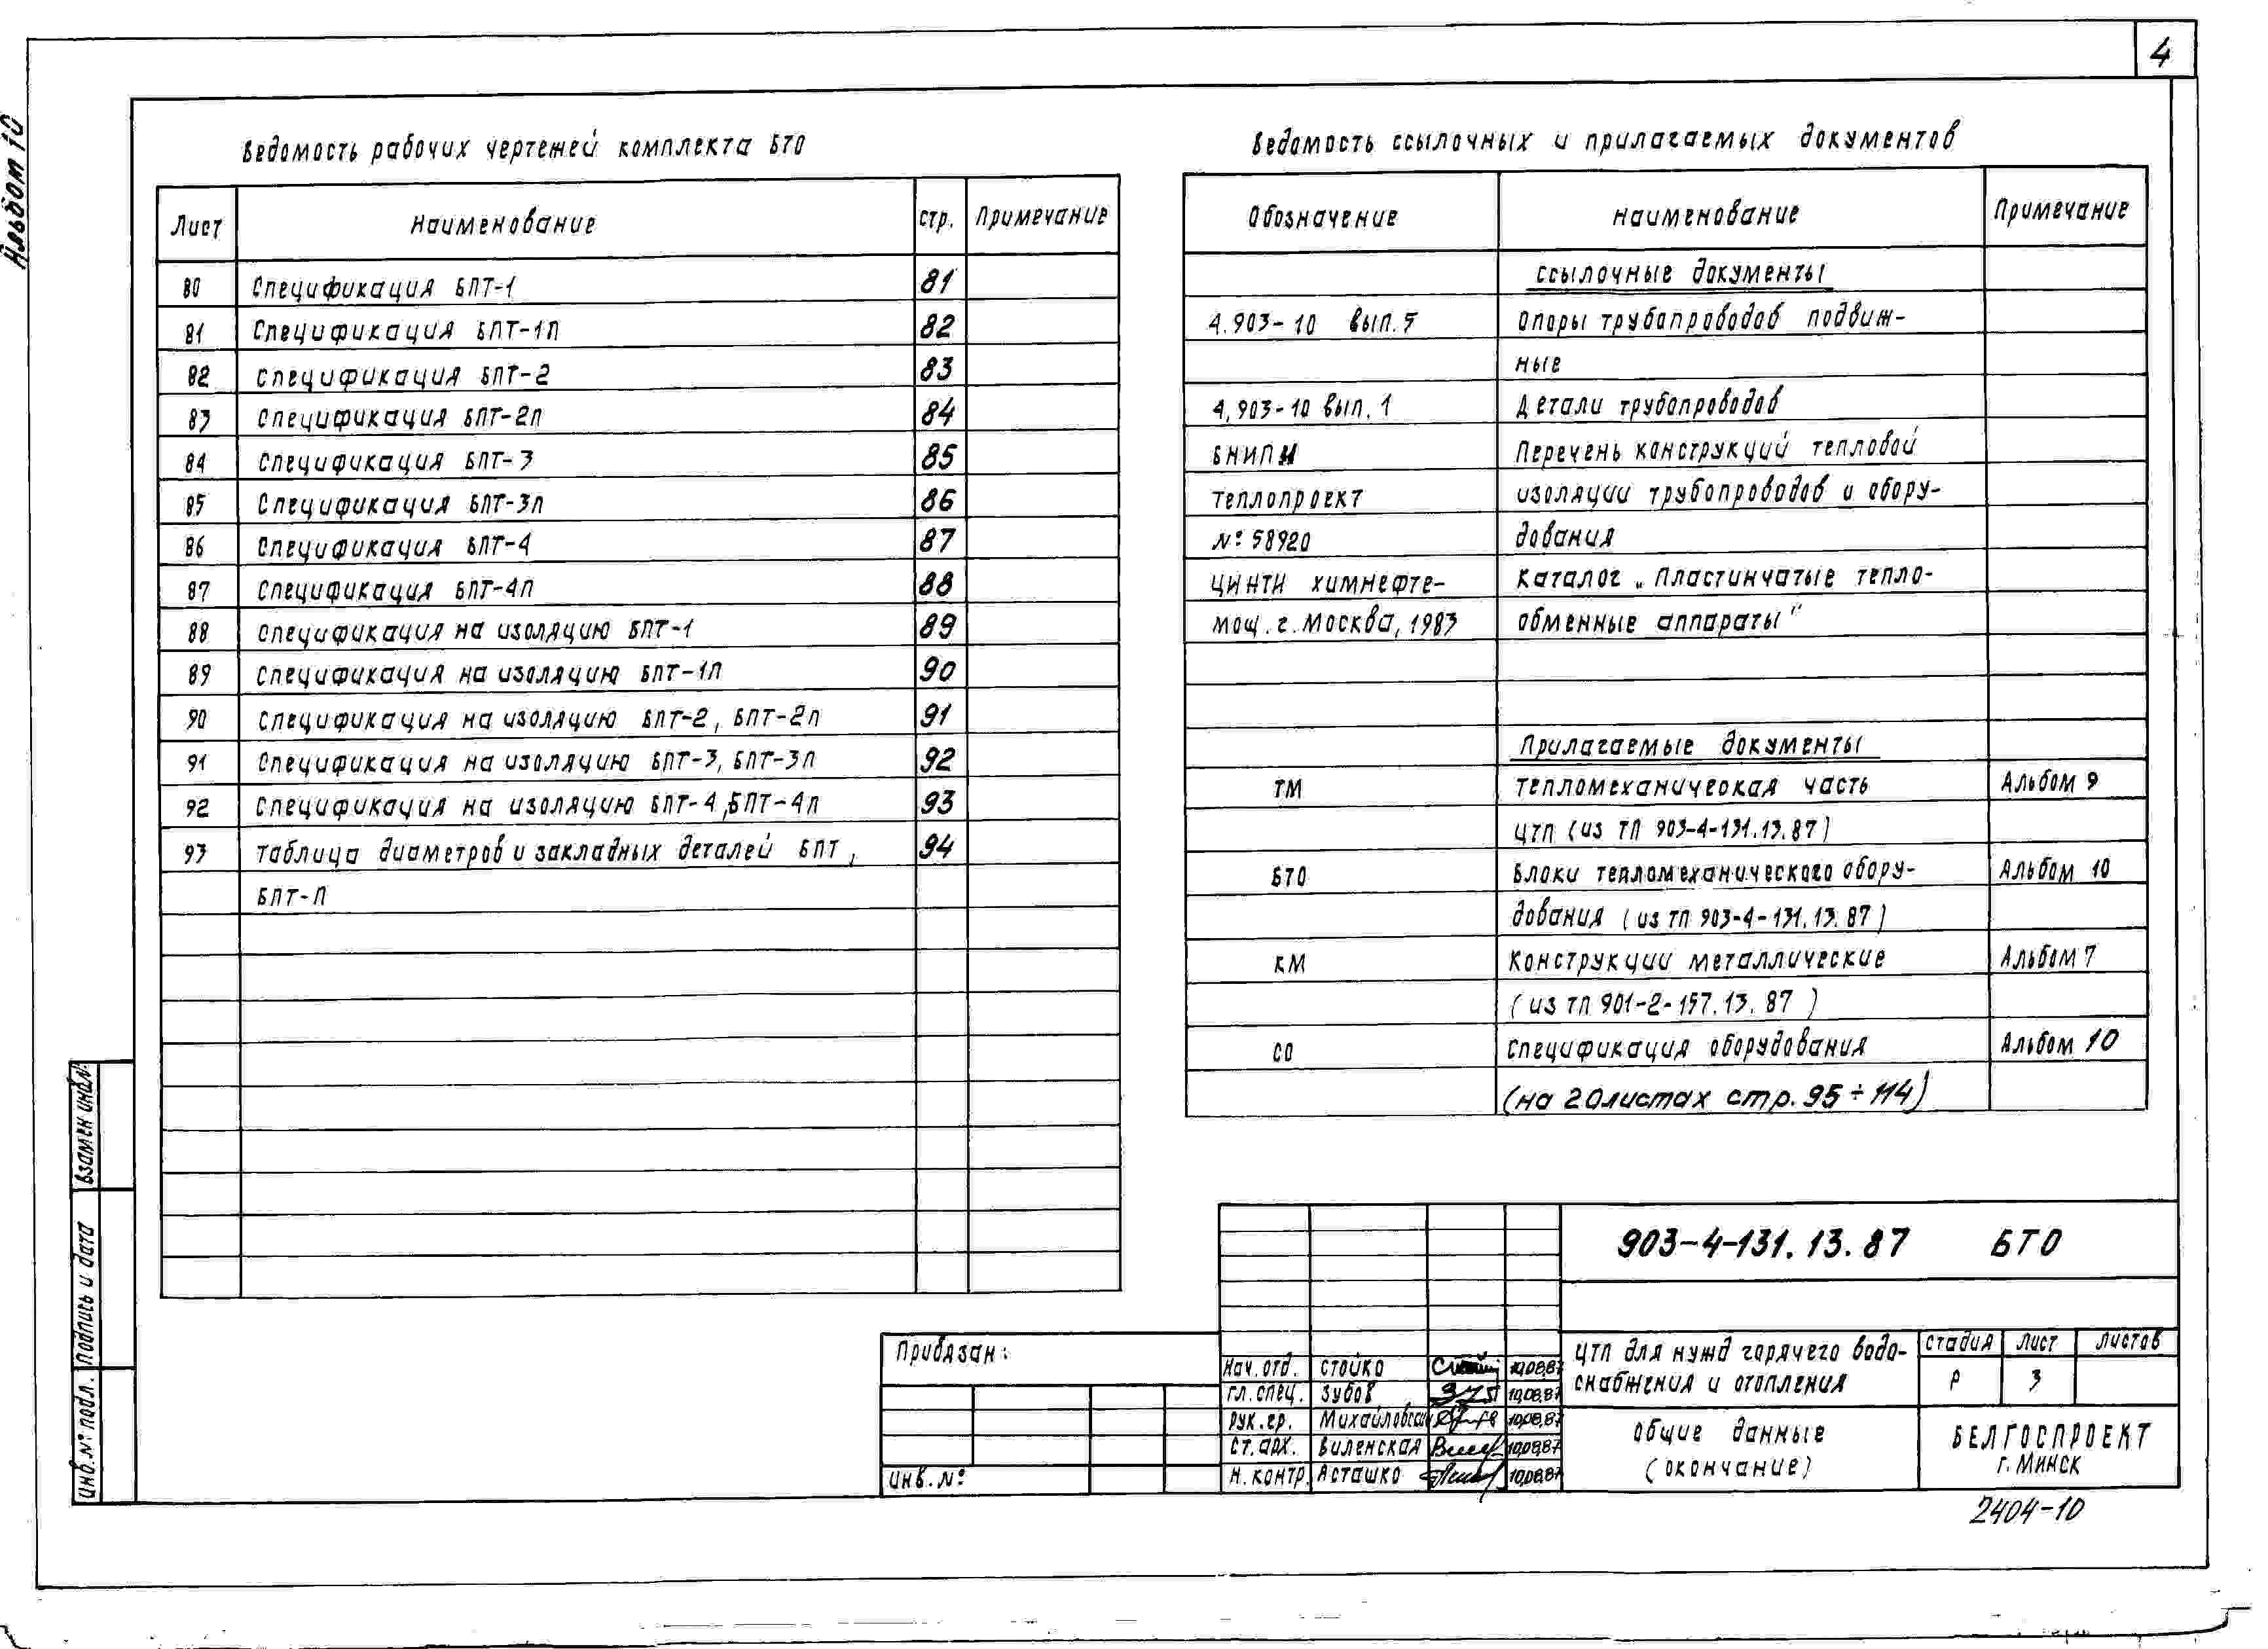 4
Альбом 10
Ведомость рабочих чертежей комплекта БТО
Лист Наименование стр. Примечание
80 Спецификация БПТ-1 81
81 Спецификация БПТ-1П 82
82 Спецификация БПТ-2 83
83 Спецификация БПТ-2П 84
84 Спецификация БПТ-3 85
85 Спецификация БПТ-3П 86
86 Спецификация БПТ-4 87
87 Спецификация БПТ-4П 88
88 Спецификация на изоляцию БПТ-1 89
89 Спецификация на изоляцию БПТ-1П 90
90 Спецификация на изоляцию БПТ-2, БПТ-2П 91
91 Спецификация на изоляцию БПТ-3, БПТ-3П 92
92 Спецификация на изоляцию БПТ-4, БПТ-4П 93
93 Таблица диаметров и закладных деталей БПТ, 94
БПТ-П
Ведомость ссылочных и прилагаемых документов
Обозначение Наименование Примечание
Ссылочные документы
4.903-10 вып.5 Опоры трубопроводов подвиж-
ные
4.903-10 вып.1 Детали трубопроводов
ВНИПИ Перечень конструкций тепловой
Теплопроект изоляции трубопроводов и обору-
№ 58920 дования
ЦИНТИ химнефте- Каталог „Пластинчатые тепло-
мощ. г. Москва, 1983 обменные аппараты"
Прилагаемые документы
ТМ Тепломеханическая часть Альбом 9
ЦТП (из ТП 903-4-131.13.87)
БТО Блоки тепломеханического обору- Альбом 10
дования (из ТП 903-4-131.13.87)
КМ Конструкции металлические Альбом 7
(из ТП 901-2-157.13.87)
СО Спецификация оборудования Альбом 10
(на 20листах стр. 95÷114)
Взамен инв.№
Подпись и дата
Инв.№ подл.
Привязан:
Инв.№
Нач. отд. Стойко 10.08.87
Гл. спец. Зубов 10.08.87
Рук. гр. Михайловская 10.08.87
Ст. арх. Виленская 10.08.87
Н. контр. Асташко 10.08.87
903-4-131.13.87 БТО
ЦТП для нужд горячего водо-
снабжения и отопления
Стадия Лист Листов
Р 3
Общие данные
(окончание)
БЕЛГОСПРОЕКТ
г. Минск
2404-10